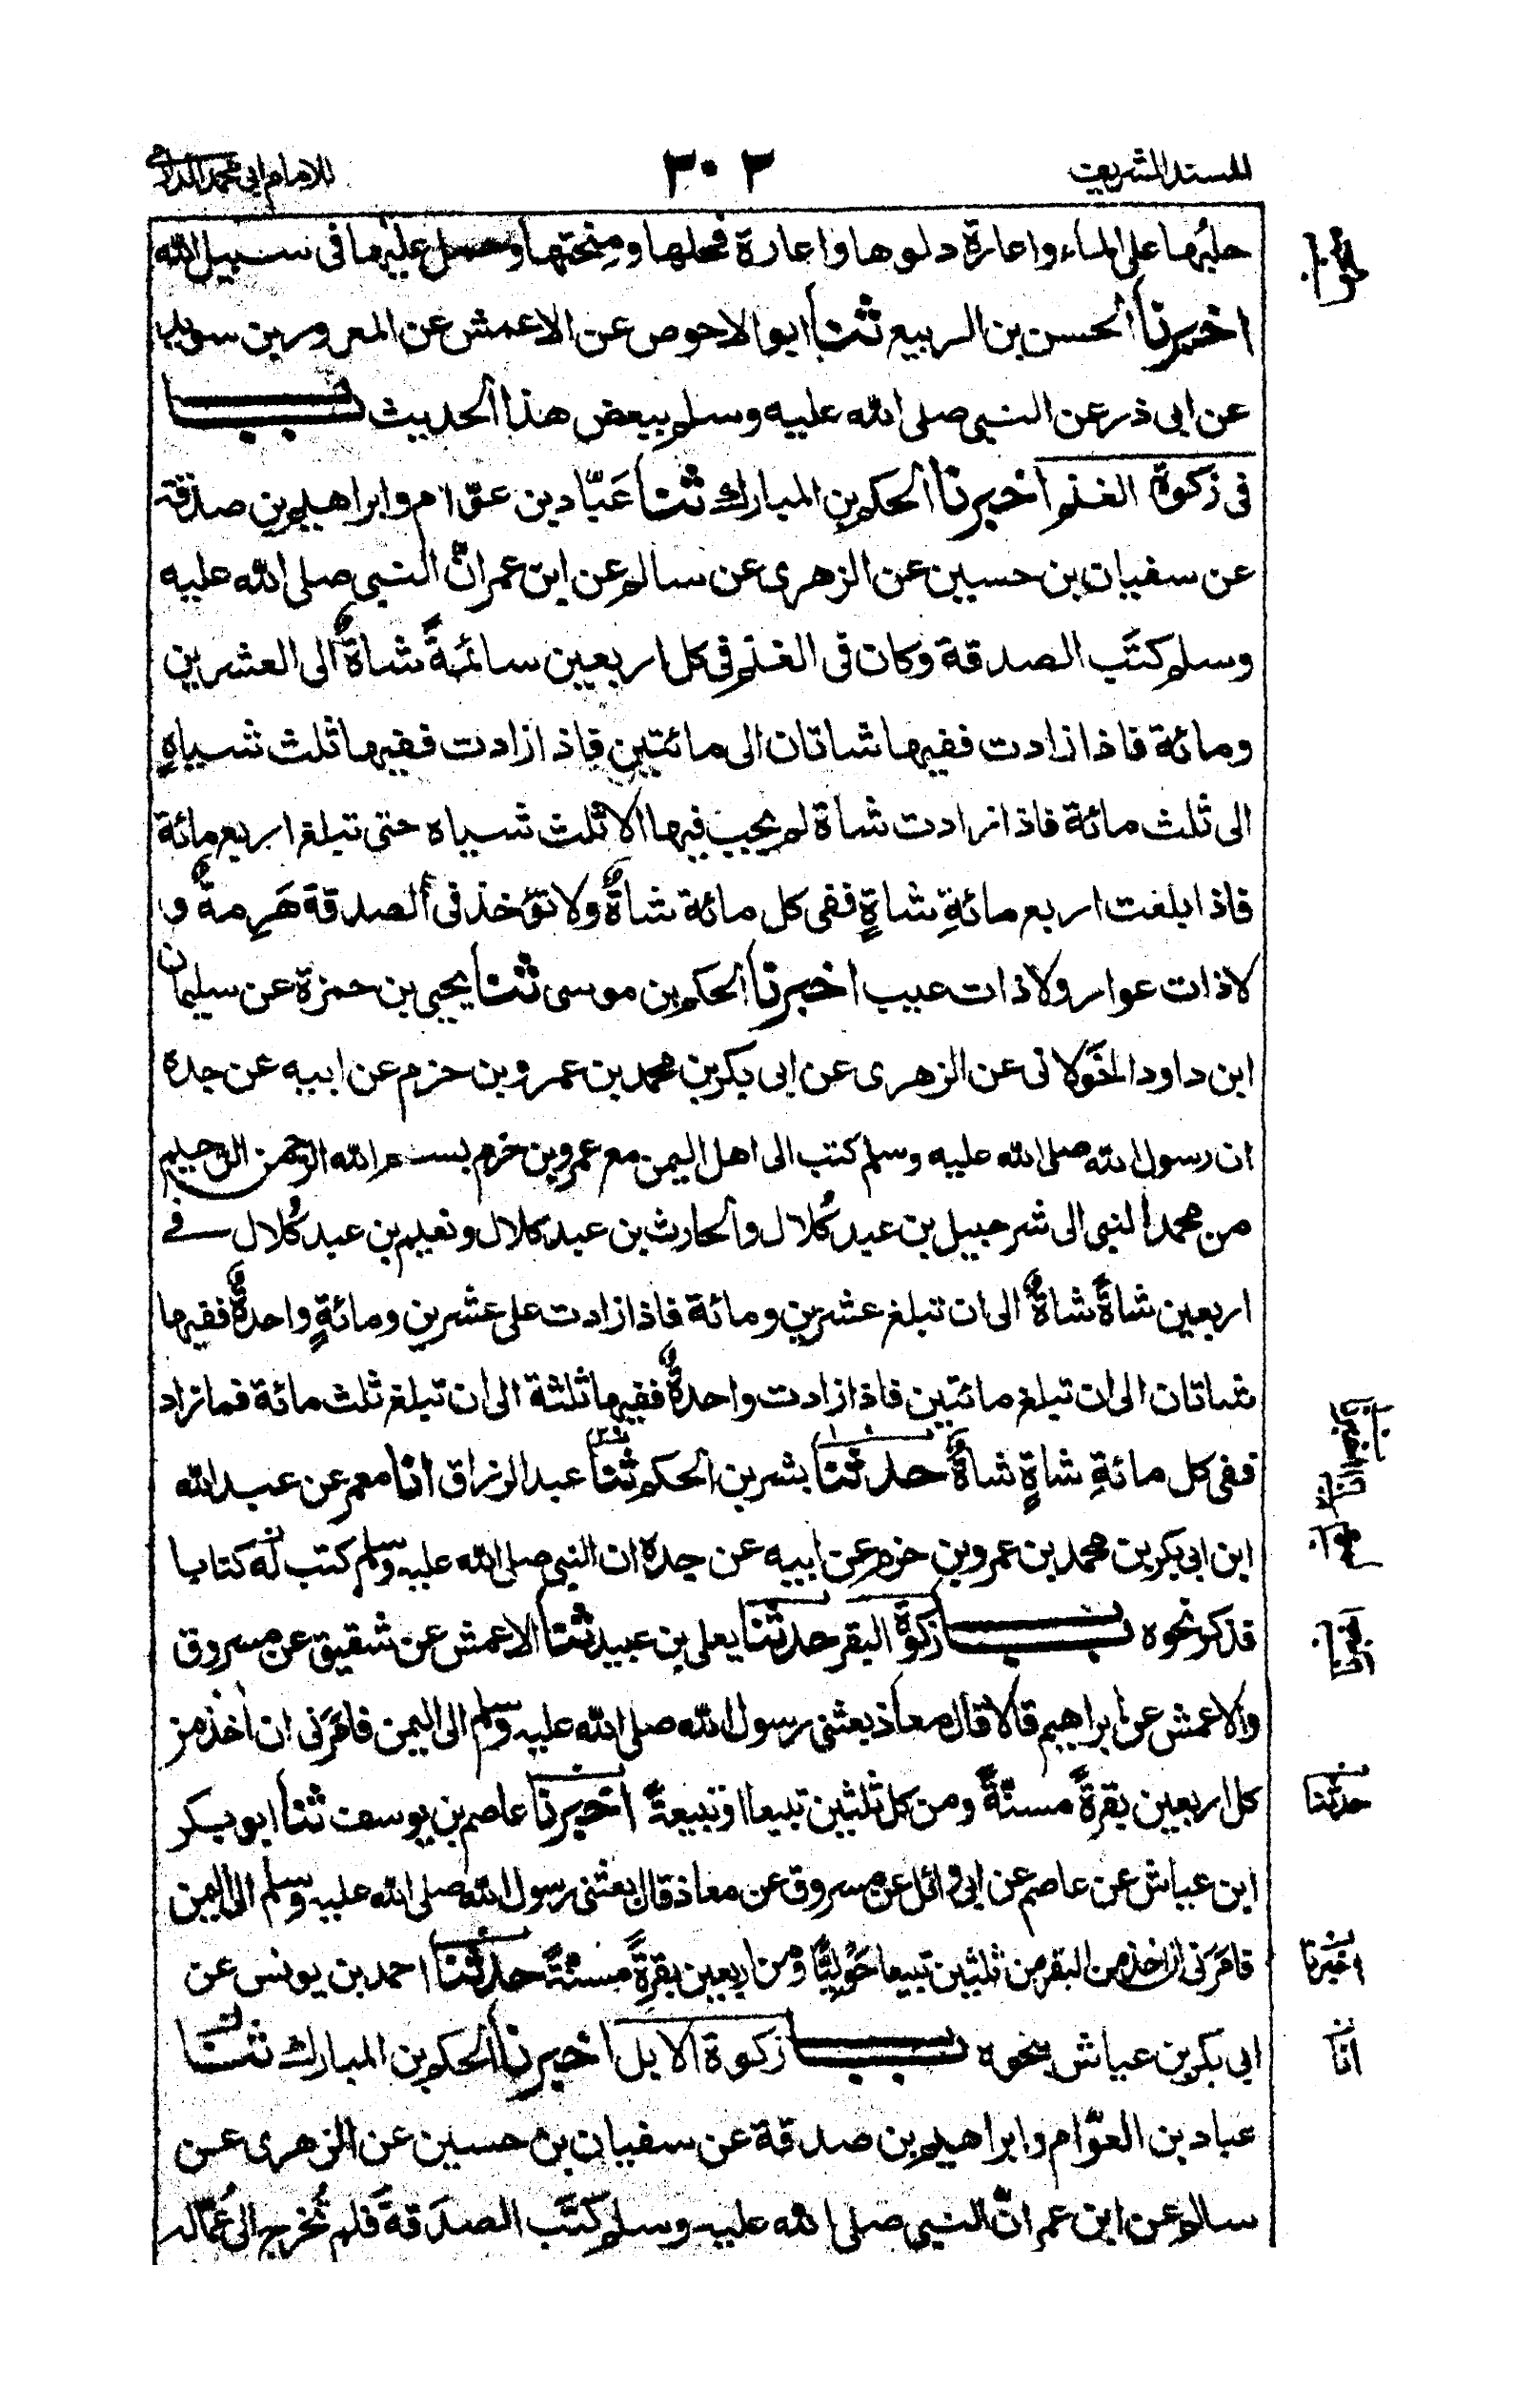 المسند الشريف ٣٠٢ للامام ابى محمد الدارمى
حلبُها على الماء واعارة دلوها واعارة فحلها ومِنحتها وحمل عليها فى سبيل الله
اخبرنا الحسن بن الربيع ثنا ابو الاحوص عن الاعمش عن المعرور بن سويد
عن ابى ذر عن النبى صلى الله عليه وسلم ببعض هذا الحديث باب
فى زكوة الغنم اخبرنا الحكم بن المبارك ثنا عَبّاد بن عوّام وابراهيم بن صدقة
عن سفيان بن حسين عن الزهرى عن سالم عن ابن عمر انّ النبى صلى الله عليه
وسلم كتَب الصدقة وكان فى الغنم فى كل اربعين سائمةً شاةٌ الى العشرين
ومائة فاذا زادت ففيها شاتان الى مائتين فاذا زادت ففيها ثلث شياهٍ
الى ثلث مائة فاذا زادت شاة لم يجب فيها الا ثلث شياه حتى تبلغ اربع مائة
فاذا بلغت اربع مائةِ شاةٍ ففى كل مائة شاةٌ ولا تؤخذ فى الصدقة هَرِمةٌ و
لا ذات عوار ولا ذات عيب اخبرنا الحكم بن موسى ثنا يحيى بن حمزة عن سليمان
ابن داود الخَولانى عن الزهرى عن ابى بكر بن محمد بن عمرو بن حزم عن ابيه عن جده
ان رسول الله صلى الله عليه وسلم كتب الى اهل اليمن مع عمرو بن حزم بسم الله الرحمن الرحيم
من محمد النبى الى شرحبيل بن عبد كُلال والحارث بن عبد كلال ونعيم بن عبد كُلال فى
اربعين شاةً شاةٌ الى ان تبلغ عشرين ومائة فاذا زادت على عشرين ومائةٍ واحدةٌ ففيها
شاتان الى ان تبلغ مائتين فاذا زادت واحدةٌ ففيها ثلثة الى ان تبلغ ثلث مائة فما زاد
ففى كل مائةِ شاةٍ شاةٌ حدثنا بشر بن الحكم ثنا عبد الرزاق انا معمر عن عبد الله
ابن ابى بكر بن محمد بن عمرو بن حزم عن ابيه عن جده ان النبى صلى الله عليه وسلم كتب له كتابا
فذكر نحوه باب زكوة البقر حدثنا يعلى بن عبيد ثنا الاعمش عن شقيق عن مسروق
والاعمش عن ابراهيم قالا قال معاذ بعثنى رسول الله صلى الله عليه وسلم الى اليمن فامَرَنى ان اخذ من
كل اربعين بقرةً مسنّةً ومن كل ثلثين تبيعا او تبيعةً اخبرنا عاصم بن يوسف ثنا ابو بكر
ابن عياش عن عاصم عن ابى وائل عن مسروق عن معاذ قال بعثنى رسول الله صلى الله عليه وسلم الى اليمن
فامَرَنى ان اخذ من البقر من ثلثين تبيعا حَوليًّا ومن اربعين بقرةً مسنةً حدثنا احمد بن يونس عن
ابى بكر بن عياش بنحوه باب زكوة الابل اخبرنا الحكم بن المبارك ثنا
عباد بن العوّام وابراهيم بن صدقة عن سفيان بن حسين عن الزهرى عن
سالم عن ابن عمر انّ النبى صلى الله عليه وسلم كتَب الصدَقةَ فلم تُخرج الى عُمّاله
حدثنا
اخبرنا
انا